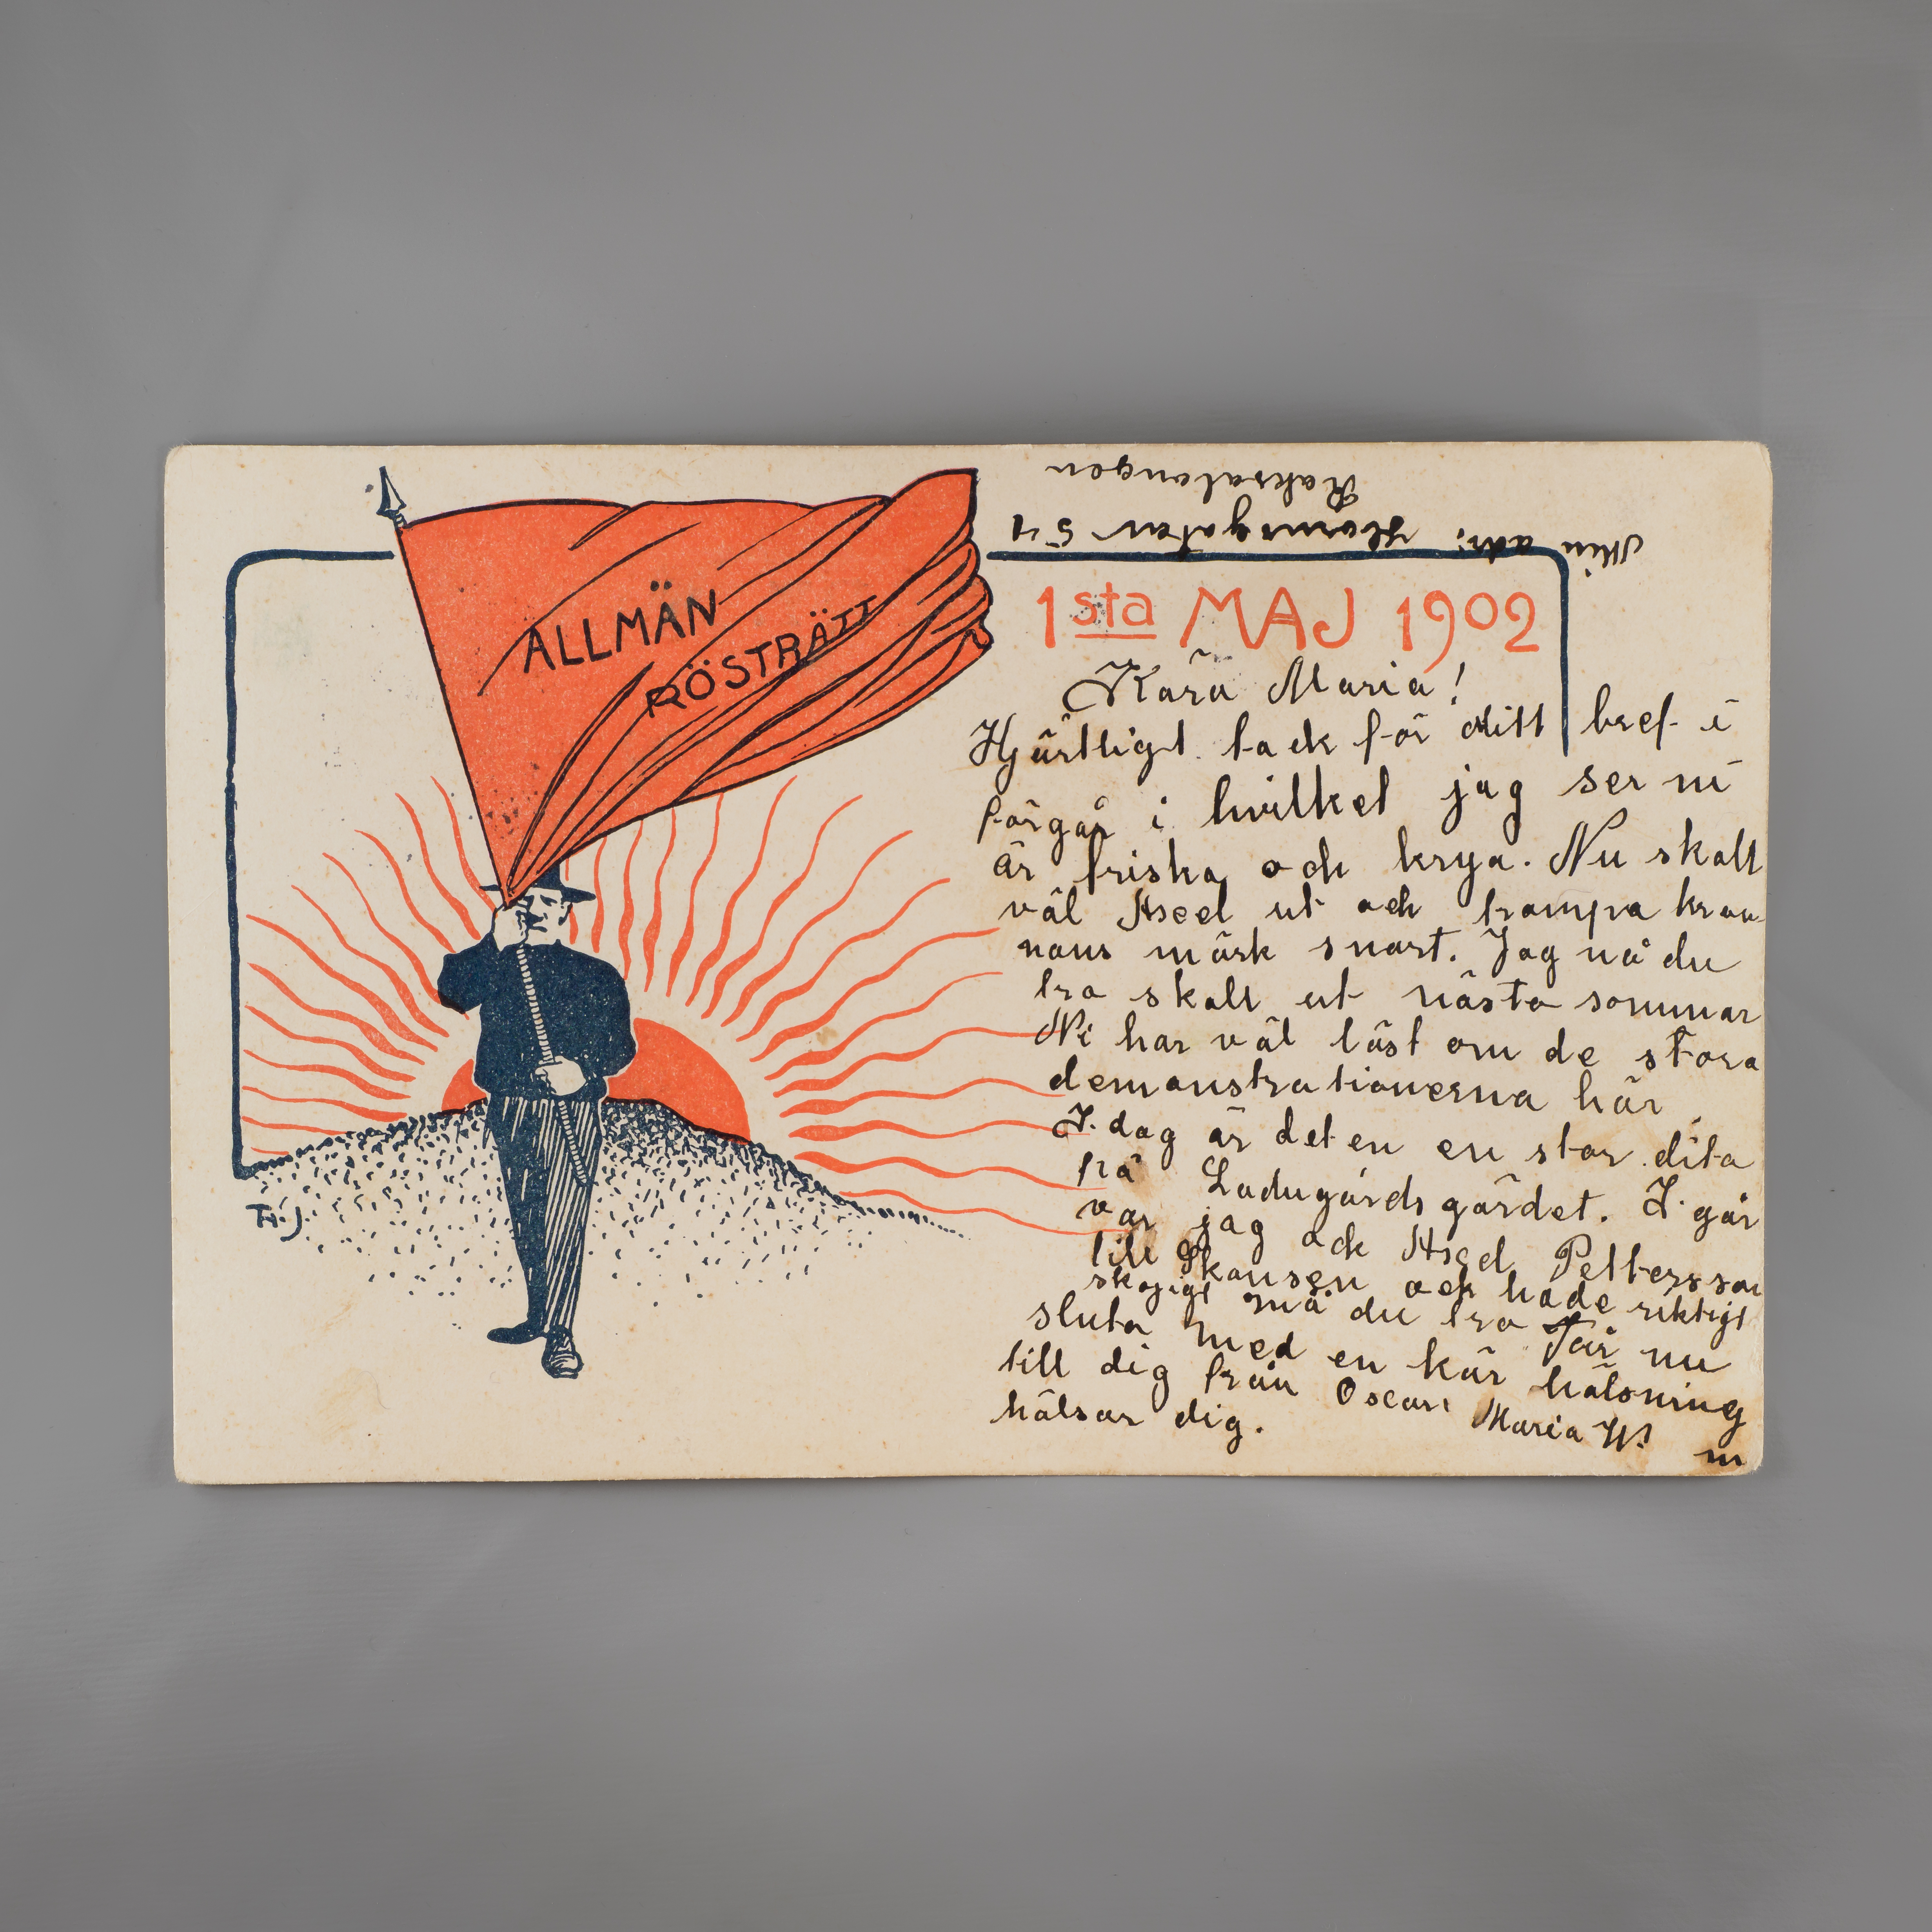 Min adr: Hornsgatan 54
Raksalongen
ALLMÄN
RÖSTRÄTT
1sta MAJ 1902
Kära Maria!
Hjärtligt tack för ditt bref i
förgår i hvilket jag ser ni
är friska och krya. Nu skall
väl Axel ut och trampa kron
nans märk snart. Jag må du
tro skall ut nästa sommar
Ni har väl läst om de stora
demonstrationerna här
I dag är det en en stor dito
på Ladugårdsgärdet. I går
var jag ock Axel Pettersson
till Skansen och hade riktigt
skojigt må du tro Får nu
sluta med en kär hälsning
till dig från Oscar Maria W.
hälsar dig.
Th.J.